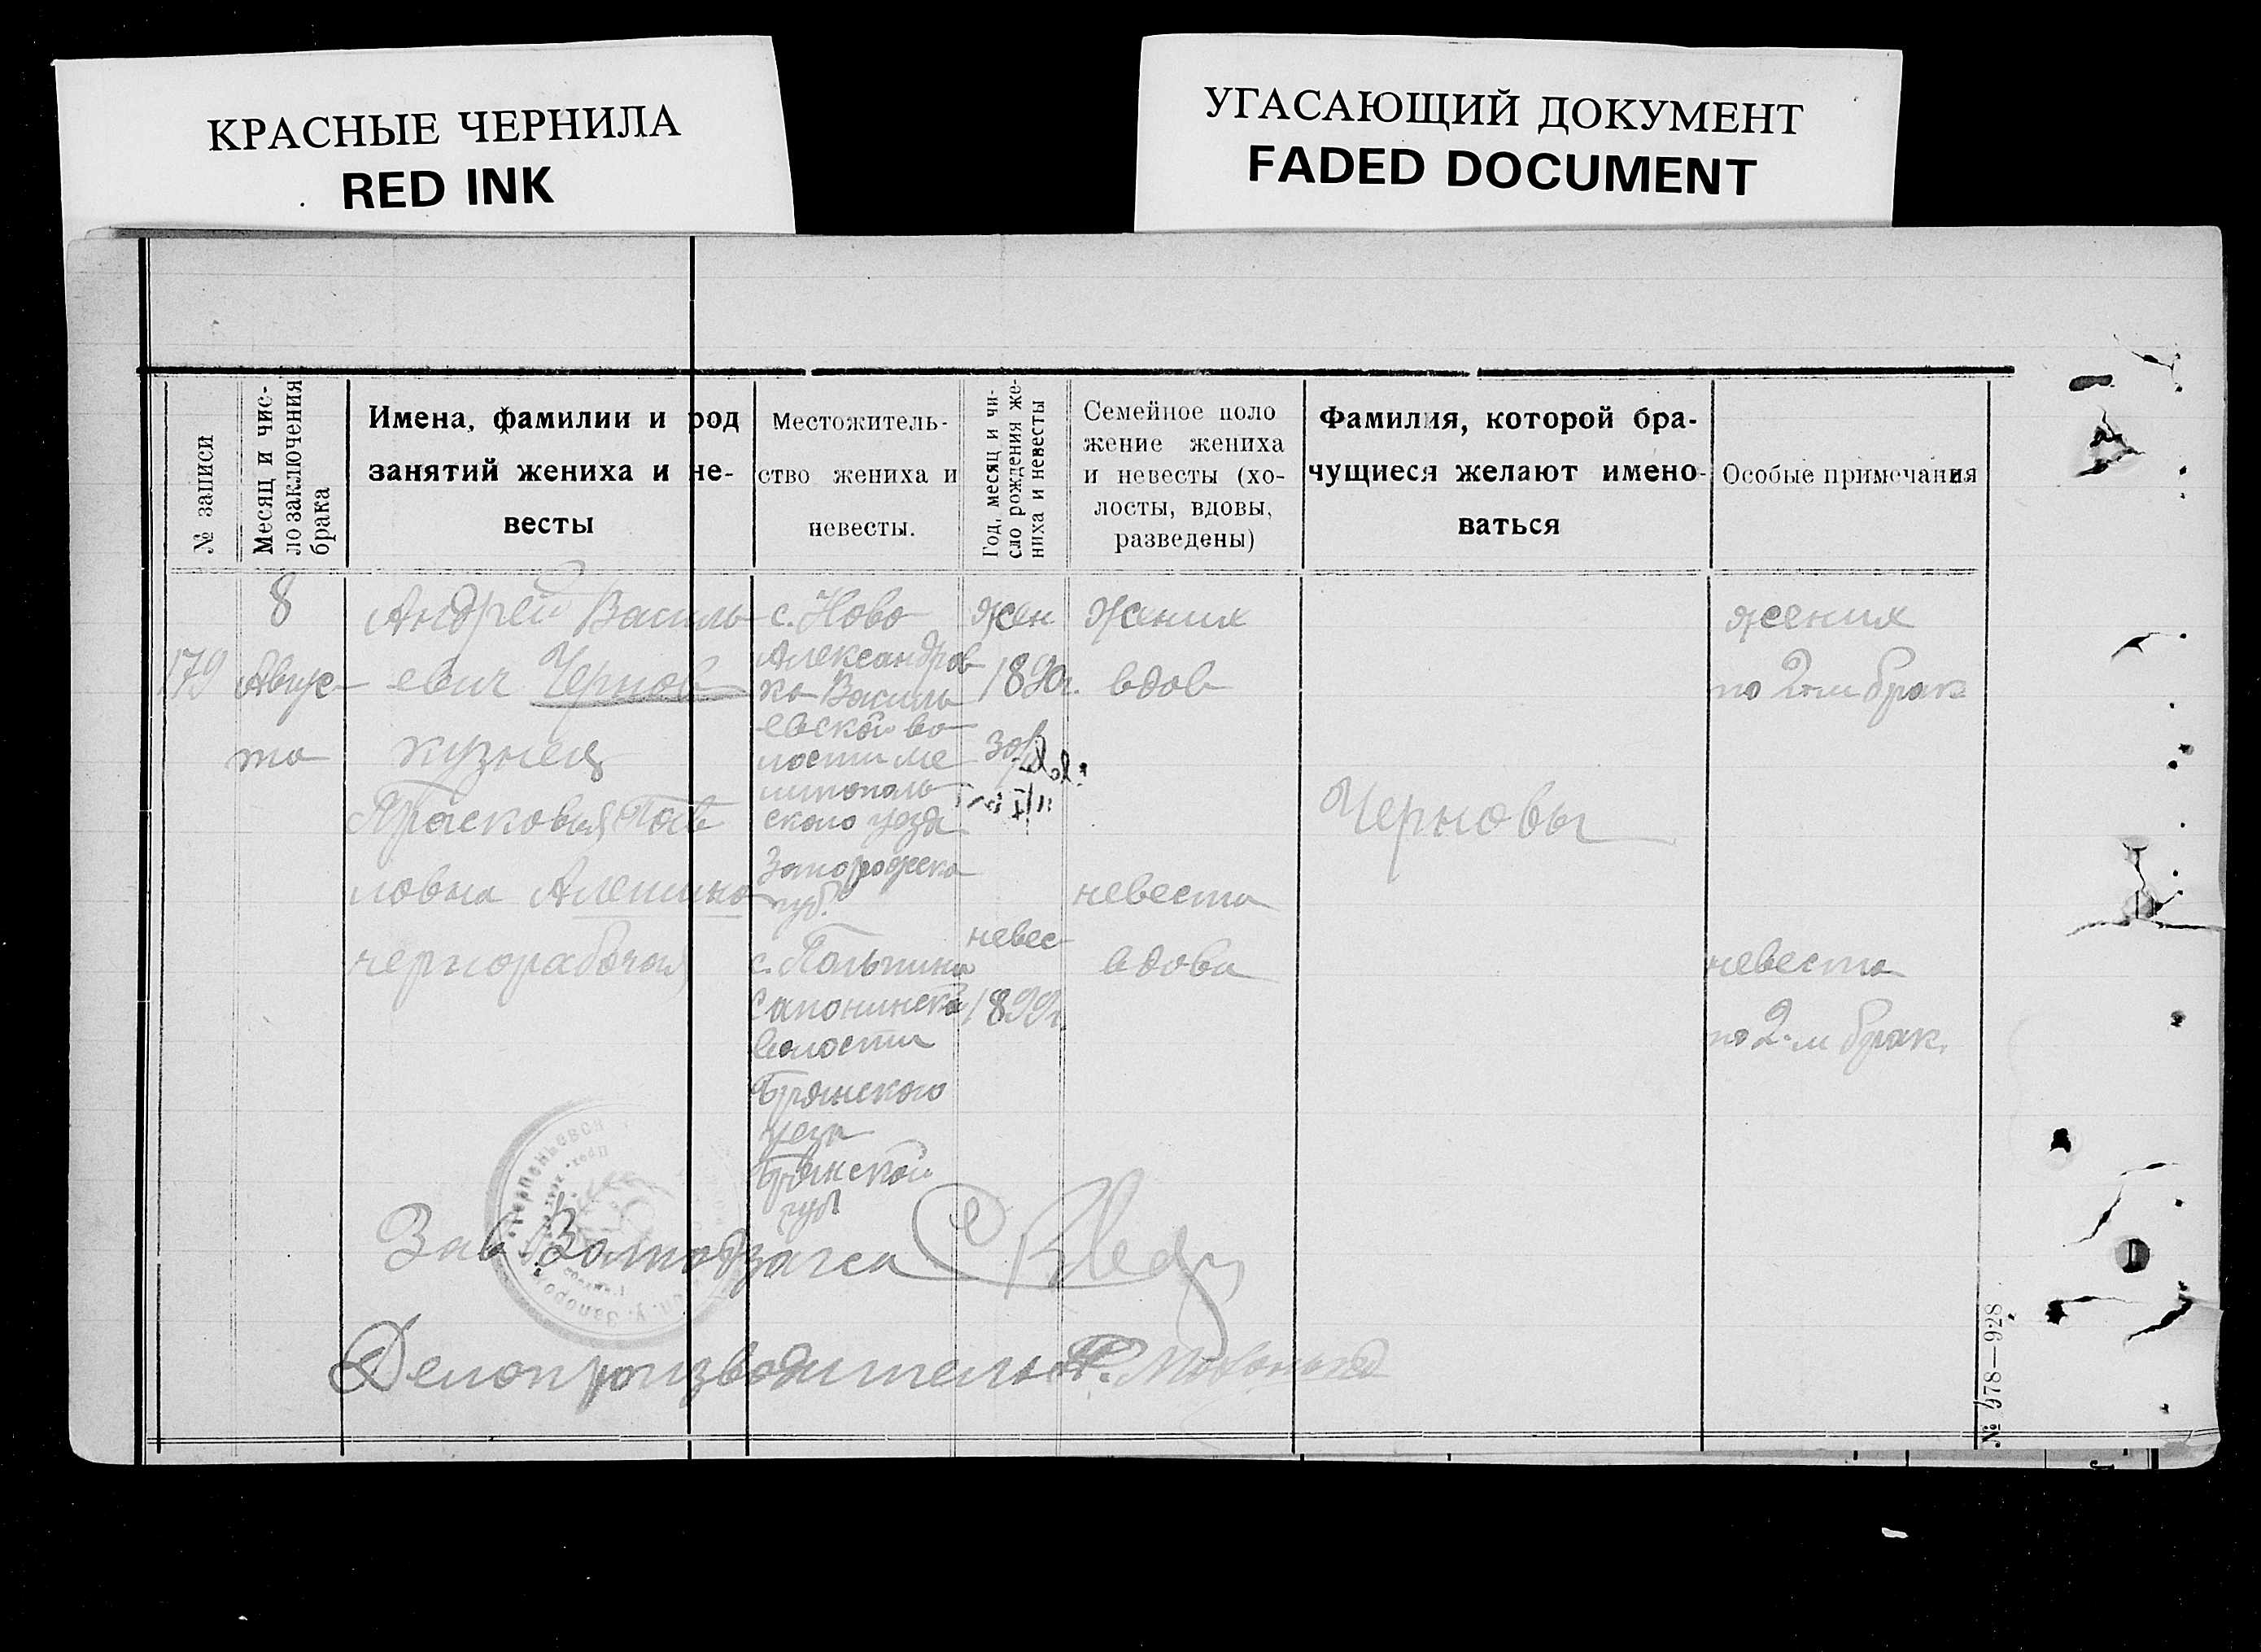 КРАСНЫЕ ЧЕРНИЛА
RED INK
УГАСАЮЩИЙ ДОКУМЕНТ
FADED DOCUMENT
№ записи
Месяц и чис-
ло заключения
брака
Имена, фамилии и род
занятий жениха и не-
весты
Местожитель-
ство жениха и
невесты.
Год, месяц и чи-
сло рождения же-
ниха и невесты
Семейное поло
жение жениха
и невесты (хо-
лосты, вдовы,
разведены)
Фамилия, которой бра-
чущиеся желают имено-
ваться
Особые примечания
179
8
Авгус-
та
Андрей Василь
евич Чернов
кузнец
Прасковья Пав
ловна Алешина
чернорабочая
с. Ново
Александров
ка Василь
евской во
лости Ме
литополь
ского уезда
Запорожско
губ.
с. Полпина
волости
Брянского
уезда
Брянской
губ
жен
1890г.
невес-
1899г.
жених
вдов
невеста
вдова
Черновы
жених
по 2-м брак
невеста
по 2-м брак.
Зав
Делопроизводитель
№ 978—928